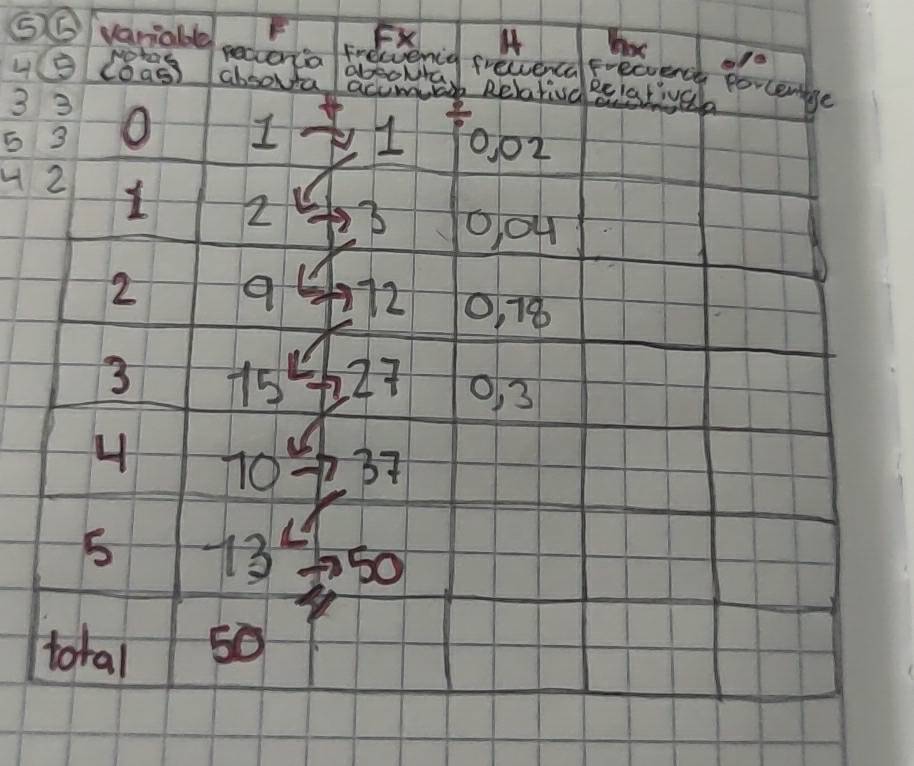 5 5 variable F Fx H hx %
4 5 notas (0 a 5) frecuencia absoluta frecuencia absoluta frecuencia Relativa Frecuencia Relativa Porcentaje
3 3
5 3 0 1 + 1 ÷ 0,02
4 2
1 2 3 0,04
2 9 12 0,18
3 15 27 0,3
4 10 37
5 13 50
total 50